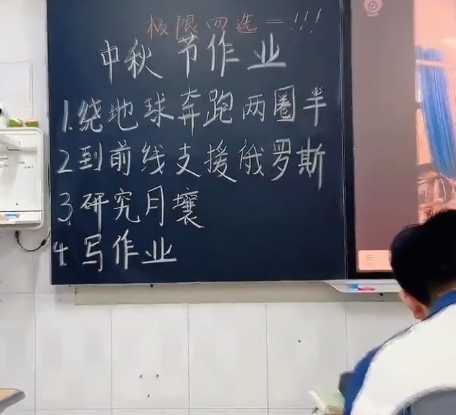 极限四选一!!!
中秋节作业
1.绕地球奔跑两圈半
2到前线支援俄罗斯
3.研究月壤
4.写作业